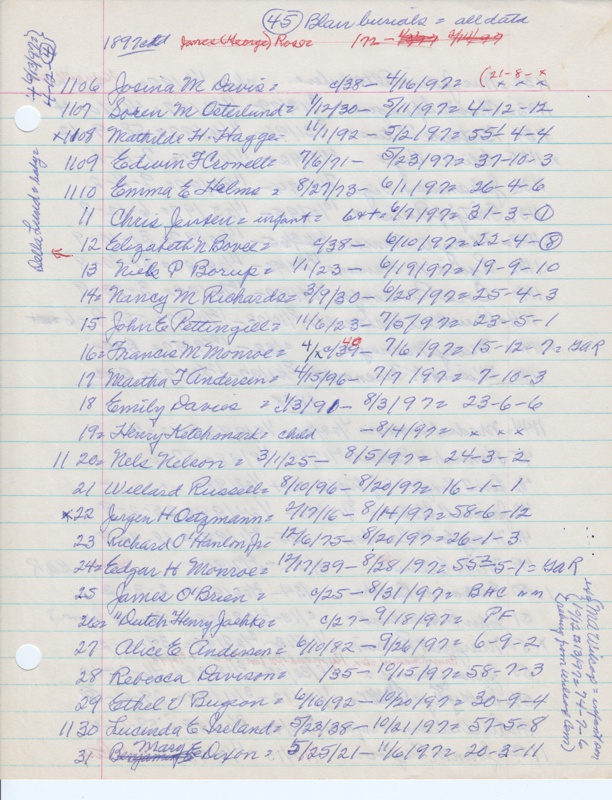 (45) Blair burials = all data
1897 ctd James (George) Roser 172 -
1106 Josina M Davis = c/38 - 4/16/97 = (21-8-x x x x
1107 Soren M Osterlund = 1/12/30 - 5/11/97 = 4-12-12
x1108 Mathilde H. Hagge - 11/1/92 - 5/2/97 = 55½ 4-4
1109 Edwin F Crowell = 7/6/71 - 5/23/97 = 37-10-3
1110 Emma E Helms = 8/27/73 - 6/1/97 = 26-4-6
11 Chris Jensen = infant = 6/7/97 = 31-3-(1)
12 Elizabeth N Bovee = c/38 - 6/10/97 = 22-4-(8)
13 Niels P Borup = 1/1/23 - 6/19/97 = 19-9-10
14 = Nancy M Richards = 3/9/30 - 6/28/97 = 25-4-3
15 John E Pettingill = 11/6/23 - 7/5/97 = 23-5-1
16 = Francis M Monroe = c/39 40 - 7/6/97 = 15-12-7 = GAR
17 Martha F Andersen = 4/15/96 - 7/7/97 = 7-10-3
18 Emily Davies = 1/3/91 - 8/3/97 = 23-6-6
19 = Henry Ketchmark = child - 8/4/97 = x x x
1120 = Nels Nelson = 3/1/25 - 8/5/97 = 24-3-2
21 Willard Russell = 8/10/96 - 8/20/97 = 16-1-1
x22 Jorgen H Oetzmann = 2/17/16 - 8/14/97 = 58-6-12
23 Richard O'Hanlon Jr = 12/6/75 - 8/20/97 = 26-1-3
24 = Edgar H Monroe = 12/17/39 - 8/28/97 = 55½-5-1 = GAR
25 James O'Brien = c/25 - 8/31/97 = BHC nm
26 = "Dutch" Henry Jachke = c/27 - 9/18/97 = PF
27 Alice E Andersen = 6/10/82 - 9/26/97 = 6-9-2
28 Rebecca Davison = /35 - 10/15/97 = 58-7-3
29 Ethel V Bugeon = 6/16/92 - 10/20/97 = 30-9-4
1130 Lucinda E Ireland = 5/23/38 - 10/21/97 = 57-5-8
31 Mary E Dixon = 5/25/21 - 11/6/97 = 20-3-11
Della Lund = baby =
4/9/97 =
4-12-(4)
= infant son
74-7-6